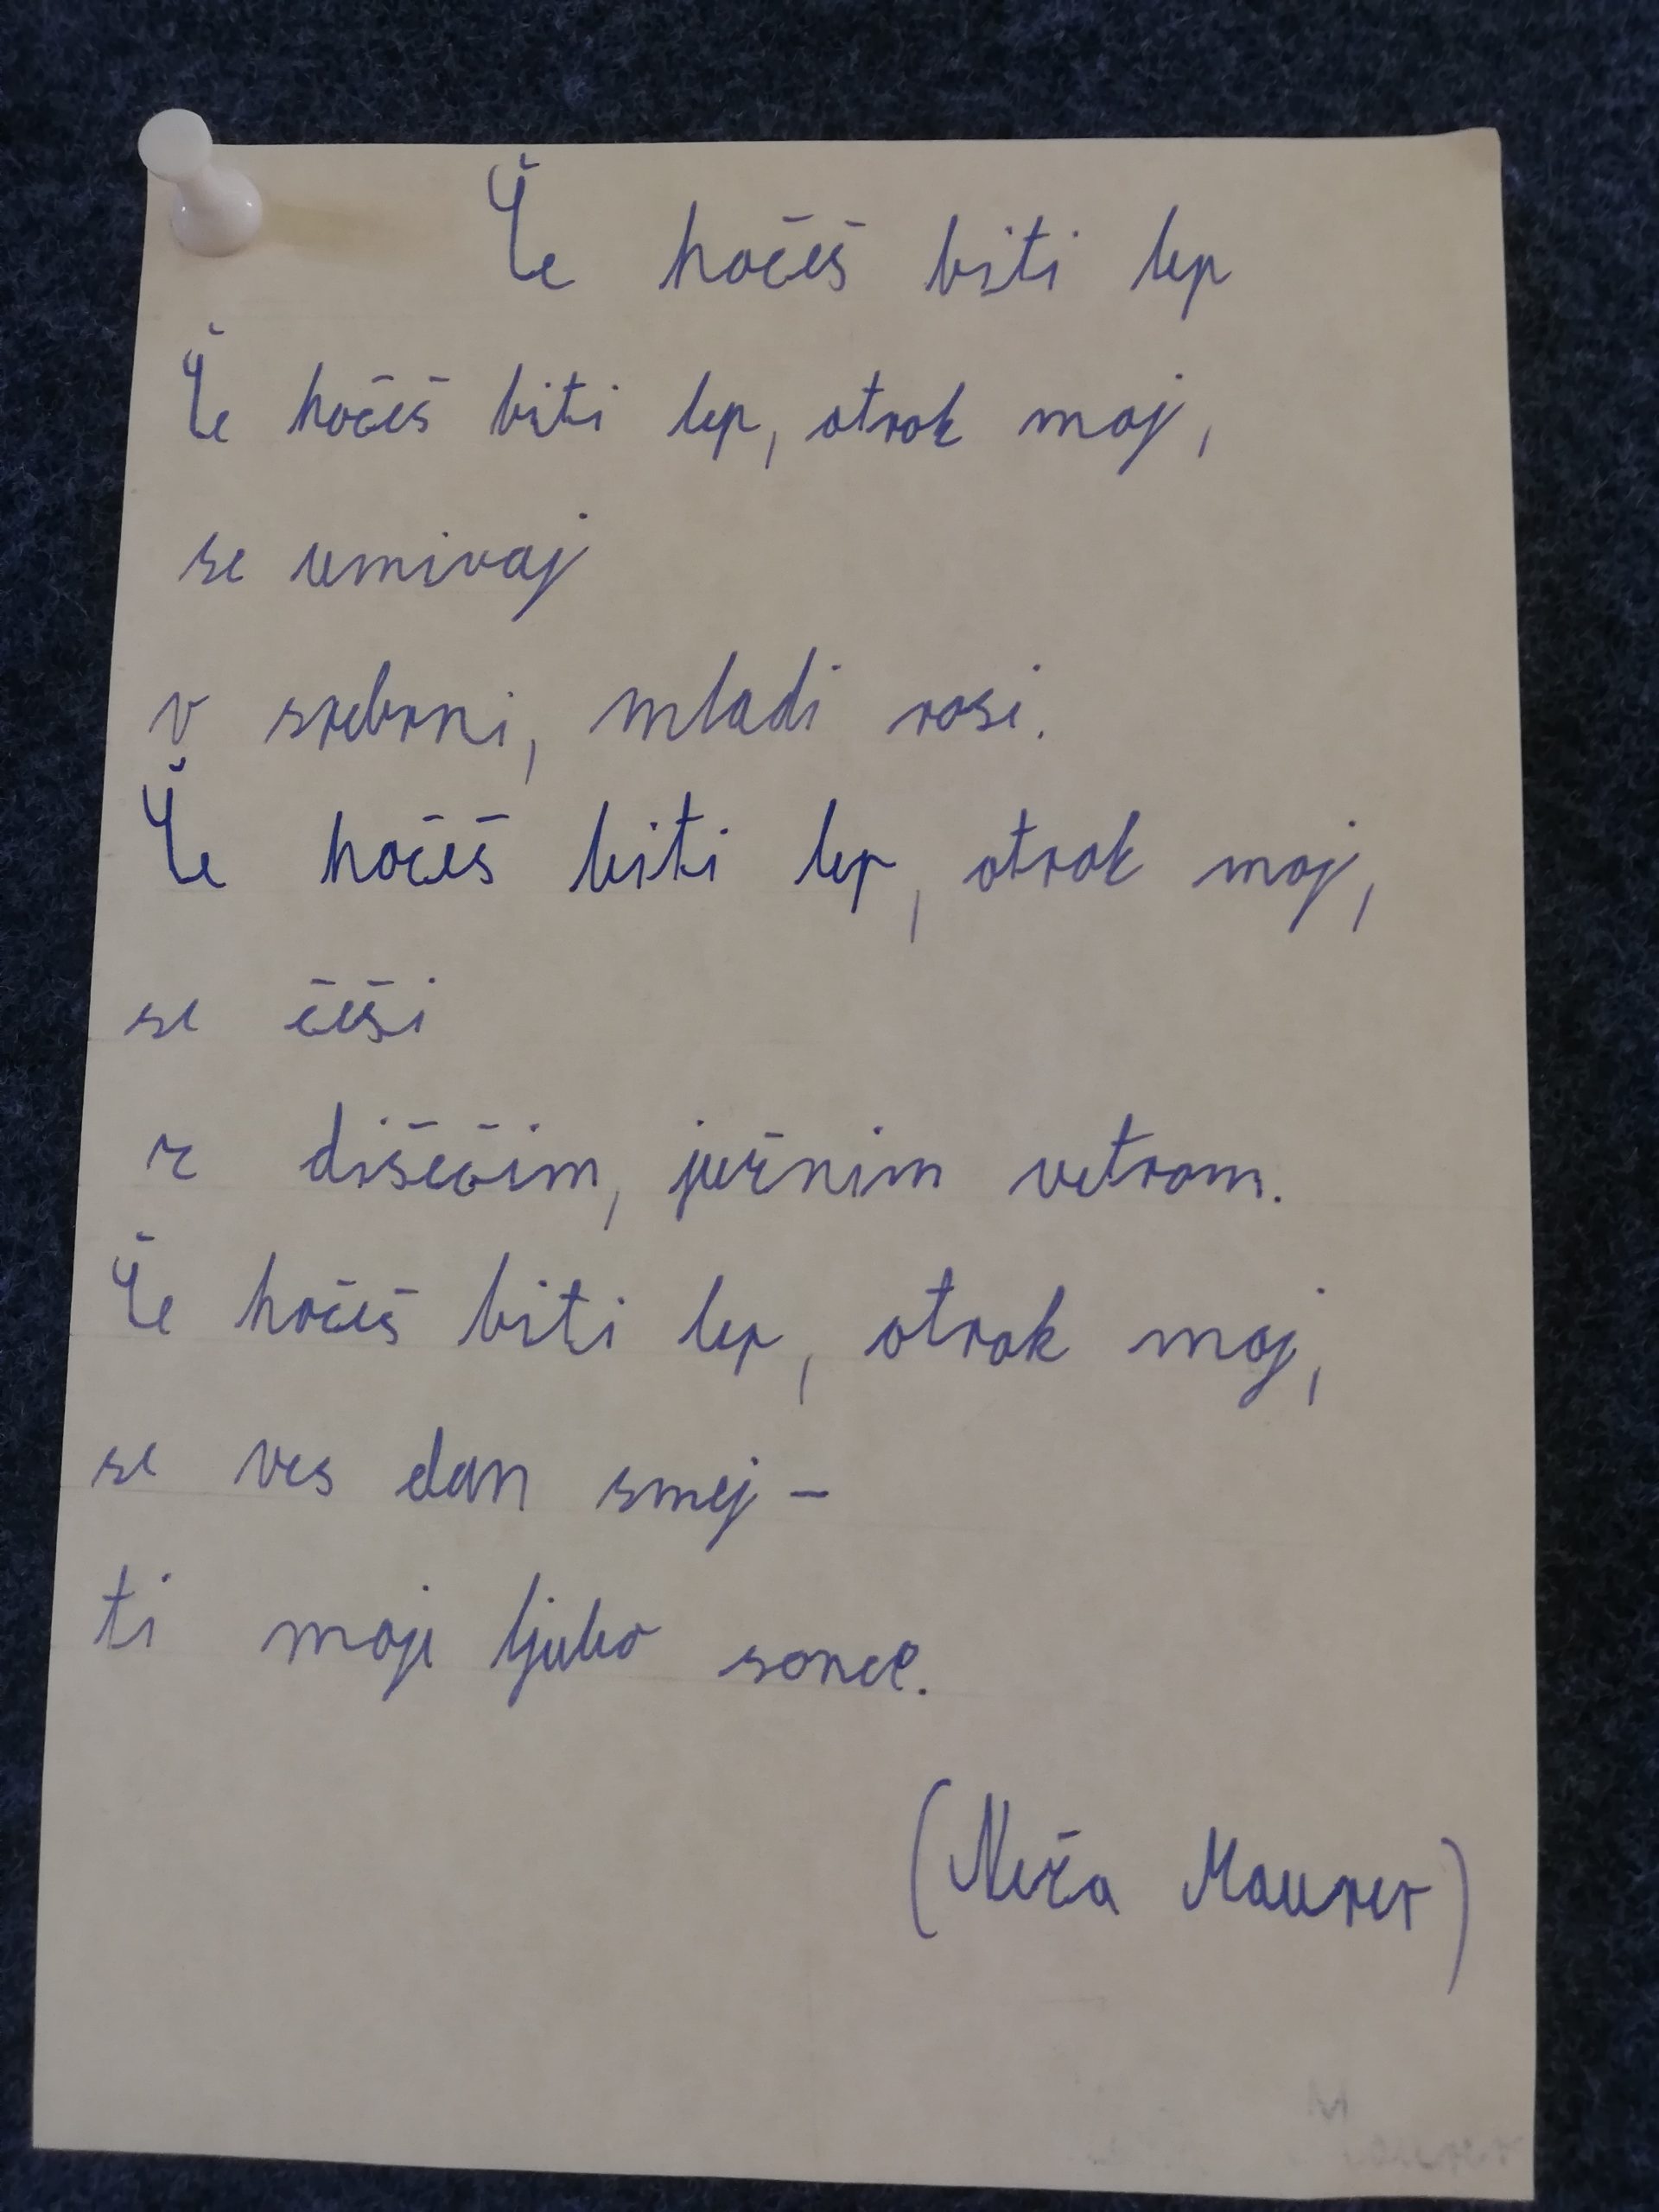 Če hočeš biti lep
Če hočeš biti lep, otrok moj,
se umivaj
v srebrni, mladi rosi.
Če hočeš biti lep, otrok moj,
se češi
z dišečim, južnim vetrom.
Če hočeš biti lep, otrok moj,
se ves dan smej –
ti moje ljubo sonce.
(Neža Maurer)